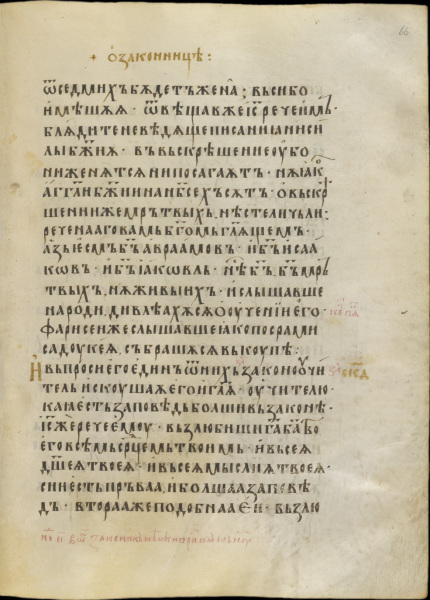 + ѻзаконницѣ :
ѿседмихъ бѫдетъ жена ; вьси бо
имѣшѫѧ · ѿвѣщав же і҃с рече имъ ·
блѫдите не вѣдѫще писаниа ни си
лы бж҃иѧ · въ въскрѣшение ѹбо
ни женѧтсѧ ни посагаѫт · нѫ ꙗко
агг҃ли бж҃ии на нб҃сехъ сѫт · о въскр
шени же мрътвыхъ нѣсте ли чьли ;
реченаго вамь бг҃омь гл҃ѫщемъ ·
азь есмъ бъ҃ авраамовъ · и бъ҃ исаа
ковъ · и бъ҃ іаковль · нѣ бъ҃ бъ҃ мрь
твыхъ нѫ живыихъ · и слышавше
народи дивлѣахѫсѧ о ѹчении его ·
фарисеи же слышавше ꙗко посрами
садѹкеѧ събрашѫсѧ въкѹпѣ :
И въпроси его единъ ѿ нихъ законоѹчи
тель искѹшаѧ его и гл҃ѧ · ѹчителю
каа есть заповѣдь болши въ законѣ ·
іс҃ же рече емѹ · възлюбиши г҃а б҃а тво
его всѣмь ср҃цемь твоимь · и въсеѧ
дш҃еѧ твоеѧ · и въсеѧ мыслиѧ твоеѧ ·
си есть пръваа и болшаа запове
дъ · втораа же подобна а еи · възлю